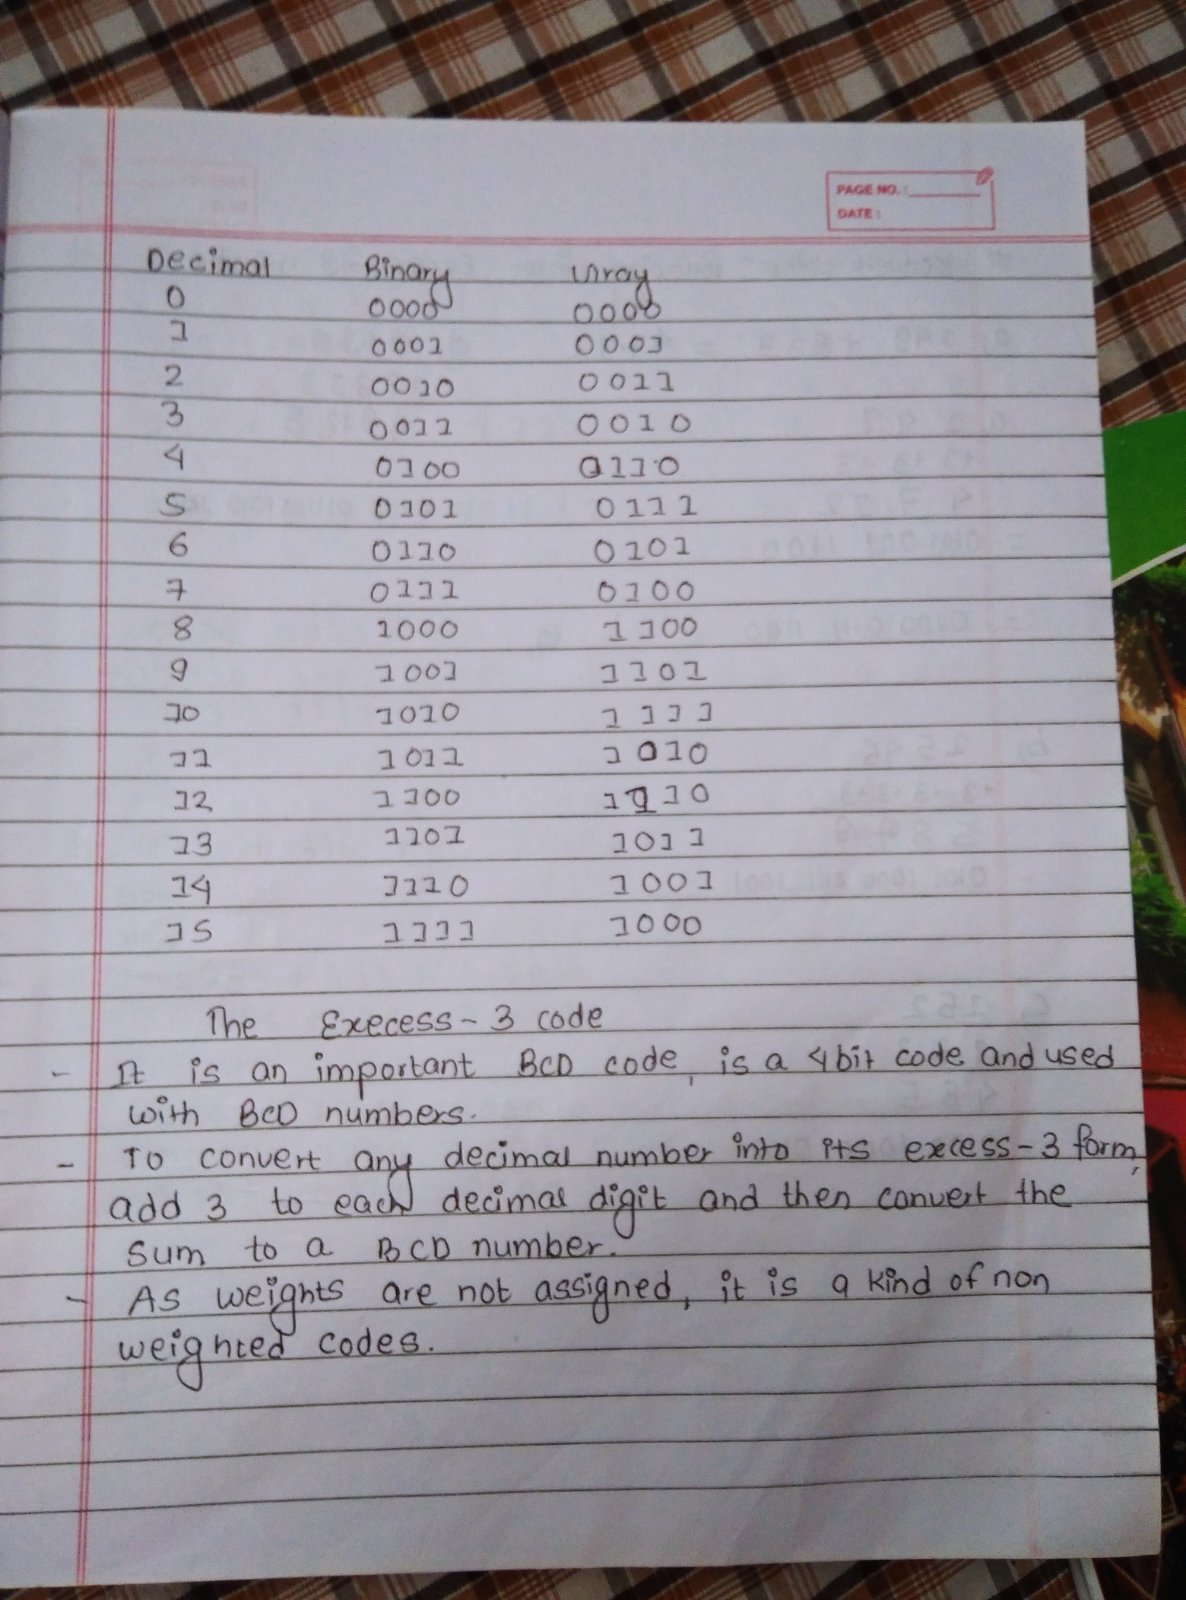 PAGE NO.:
DATE:
Decimal Binary Gray
0 0000 0000
1 0001 0001
2 0010 0011
3 0011 0010
4 0100 0110
5 0101 0111
6 0110 0101
7 0111 0100
8 1000 1100
9 1001 1101
10 1010 1111
11 1011 1010
12 1100 1010
13 1101 1011
14 1110 1001
15 1111 1000
The Execess-3 code
- It is an important BCD code, is a 4 bit code and used
with BCD numbers.
- To convert any decimal number into its excess-3 form,
add 3 to each decimal digit and then convert the
sum to a BCD number.
- As weights are not assigned, it is a kind of non
weighted codes.